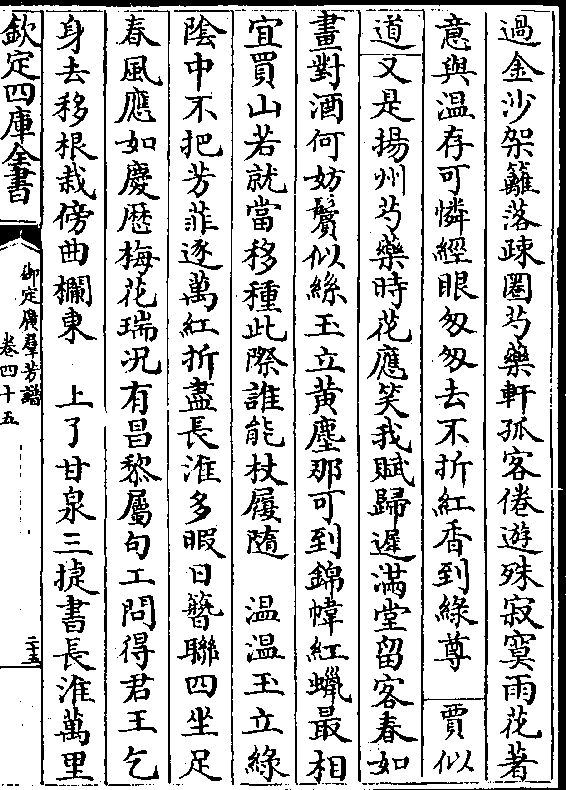 過金沙架籬落疎圈芍藥軒孤客倦遊殊寂寞雨花著
意與温存可憐經眼匆匆去不折紅香到綠尊 賈似
道又是揚州芍藥時花應笑我賦歸遲滿堂留客春如
畫對酒何妨鬢似絲玉立黃塵那可到錦幃紅蠟最相
宜買山若就當移種此際誰能杖屨隨 温温玉立綠
陰中不把芳菲逐萬紅折盡長淮多暇日簪聯四坐足
春風應如慶歴梅花瑞况有昌黎屬句工問得君王乞
身去移根栽傍曲欄東 上了甘泉三捷書長淮萬里
欽定四庫全書
御定廣羣芳譜
卷四十五
二五